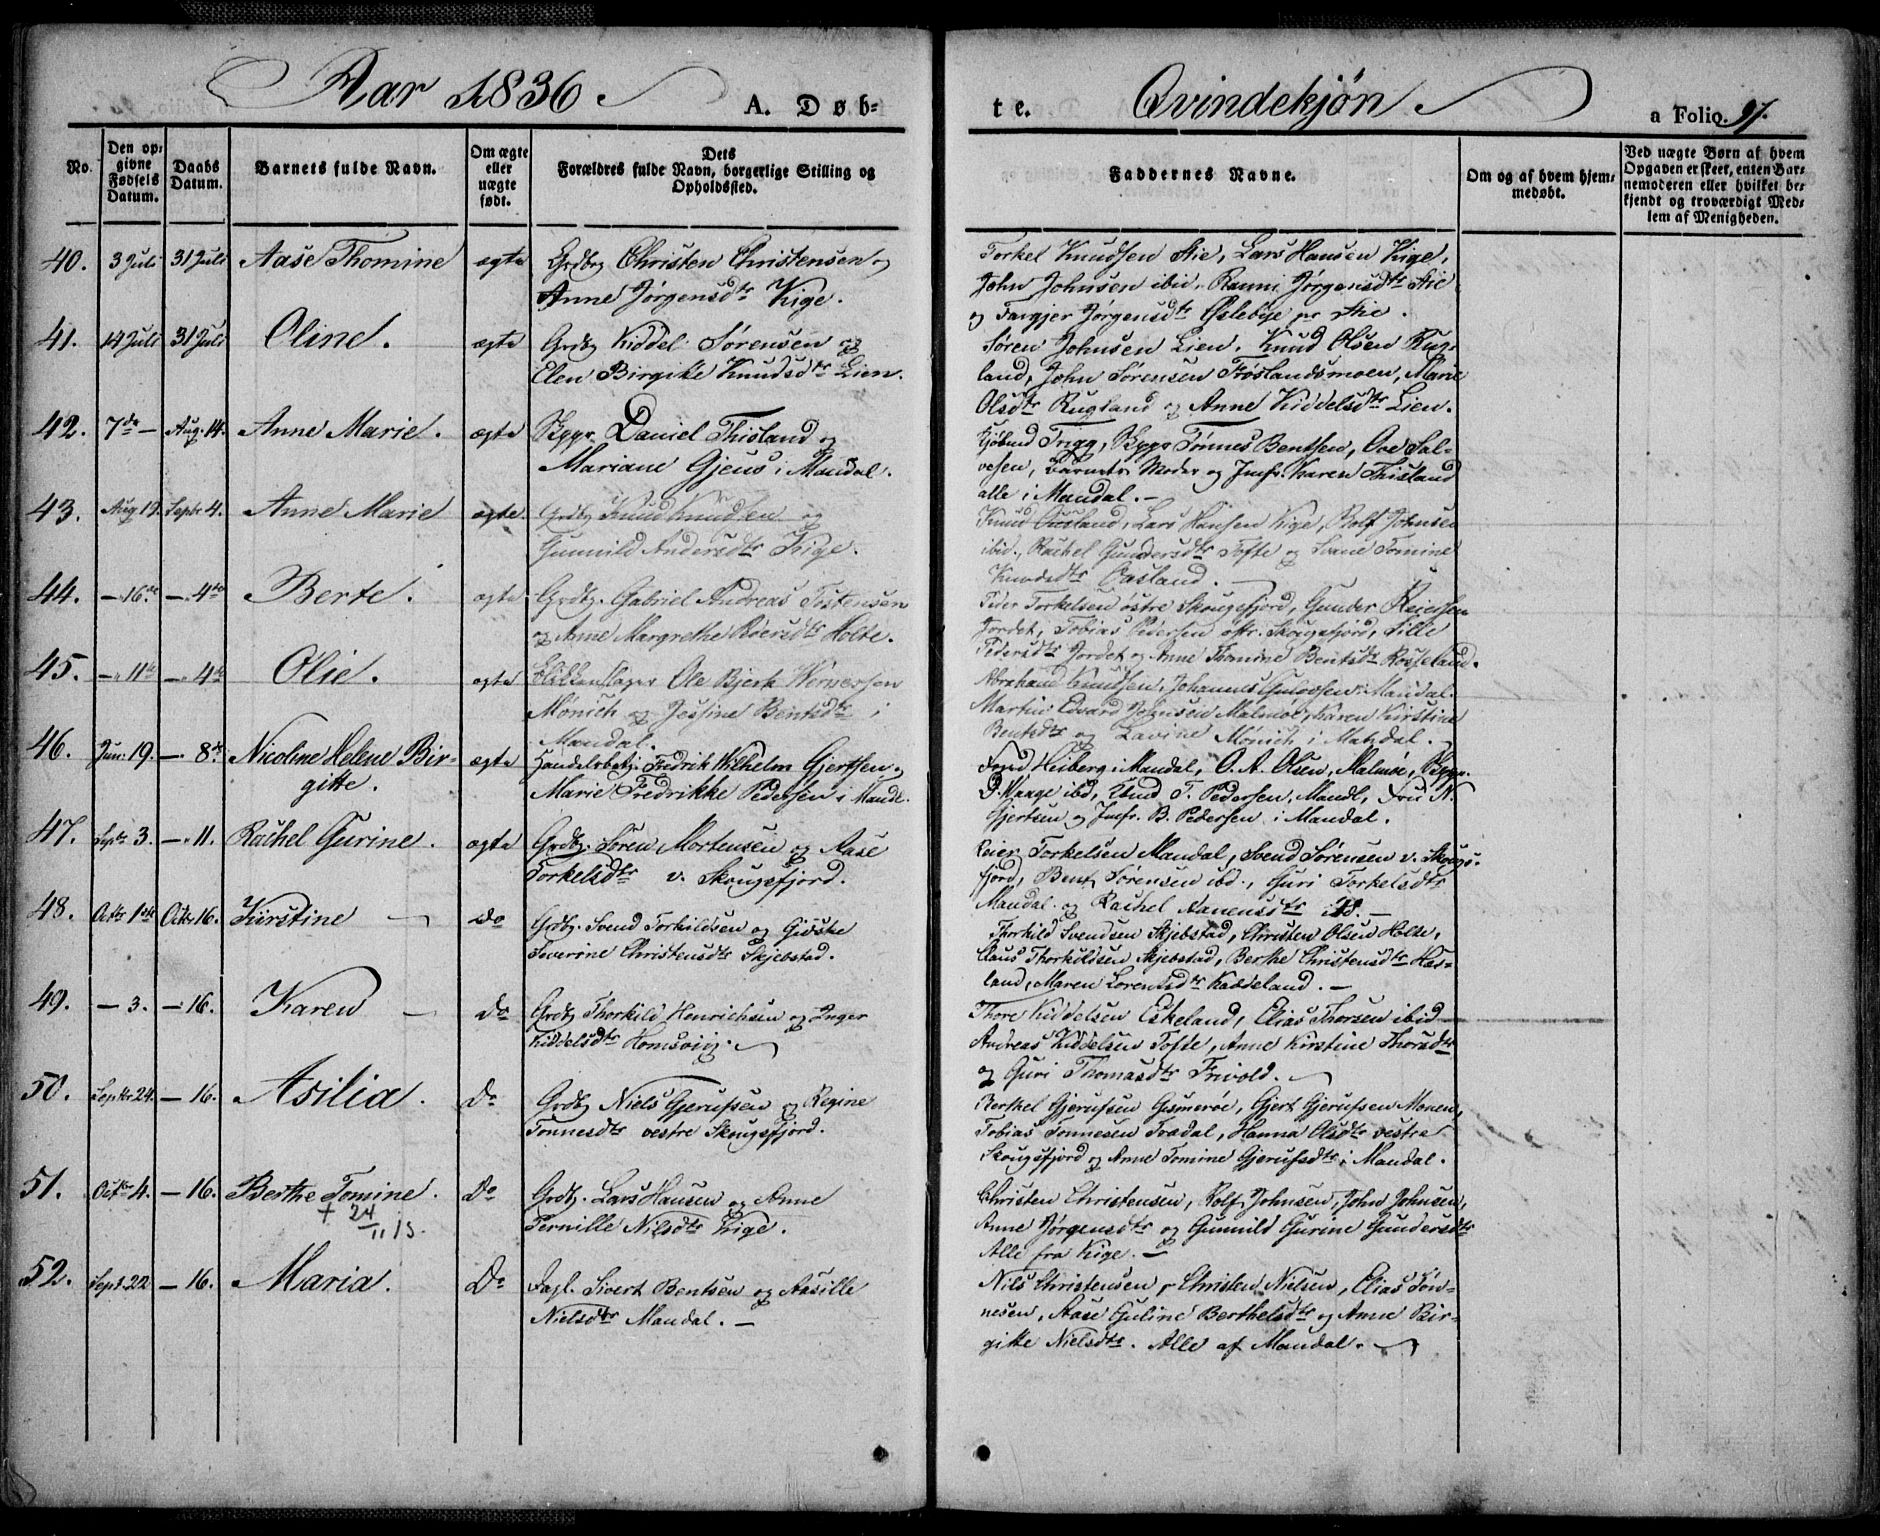 Aar 1836.
A. Døb-
te.
Qvindekjøn
a Folio 97.
No.
Den op-
givne
Fødsels
Datum.
Daabs
Datum.
Barnets fulde Navn.
Om ægte
eller
uægte
født.
Dets
Forældres fulde Navn, borgerlige Stilling og
Opholdssted.
Faddernes Navne.
Om og af hvem hjem-
medøbt.
Ved uægte Børn af hvem
Opgaven er skeet, enten Bar-
nemoderen eller hvilket be-
kjendt og troværdigt Med-
lem af Menigheden.
40. 3 Juli 31 Juli Aase Thomine ægte Grdbg Christen Christensen og
Anne Jørgensdtr Kige.
Torkel Knudsen Stie, Lars Hansen Kige,
John Johnsen ibid, Ranni Jørgensdtr Stie
og Targjer Jørgensdtr Øslebye pr Stie.
41. 14 Juli 31 Juli Oline. ægte Grdbg Kiddel Sørensen og
Elen Birgitte Knudsdtr Lien.
Søren Johnsen Lien, Knud Olsen Rug-
land, John Sørensen Frøslandsmoen, Marie
Olsdtr Rugland og Anne Kiddelsdtr Lien.
42. 7de — Aug. 14. Anne Marie. ægte Skppr. Daniel Thisland og
Mariane Gjeus i Mandal.
Kjøbmd Trygg, Skppr Tønnes Bentsen, Ove Sal-
vesen, Barnets Moder og Jmfr. Karen Thisland
alle i Mandal. —
43. Aug 19. Septr 4. Anne Marie ægte. Grdbg Knud Knudsen og
Gunnild Andersdtr Kige.
Knud Aasland, Lars Hansen Kige, Rolf Johnsen
ibid., Rachel Gundersdtr Tofte og Svane Tomine
Knudsdtr Aasland. —
44. — 16de — 4de Berte. ægte Grdbg. Gabriel Andreas Tostensen
og Anne Margrethe Roersdtr Holte.
Peder Torkelsen østre Skougsfjord, Gunder Reiersen
Jordet, Tobias Pedersen østr. Skougsfjord, Sille
Pedersdtr Jordet og Anne Thomine Bentsdtr Rosseland.
45. — 11te — 4de Olie. ægte Blikkenslager Ole Bjerk Wernersen
Mönich og Jessine Bentsdtr i
Mandal.
Abraham Knudsen, Johannes Gulovsen Mandal.
Martin Edvard Johnsen Malmøe, Karen Kirstine
Bentsdtr og Lavine Mönich i Mandal. —
46. Juni 19. — 8de Nicoline Helene Bir-
gitte. ægte Handelsbetj. Fredrik Wilhelm Gjertsen og
Marie Fredrikke Pedersen i Mandl.
Heiberg i Mandal, O. A. Olsen, Malmøe, Skppr.
D. Waage ibd, T. Pedersen, Mandl, Fru N.
Gjertsen og Jmfr. B. Pedersen i Mandal.
47. Septr 3. — 11. Rachel Gurine. ægte Grdbg. Søren Mortensen og Aase
Torkelsdtr v. Skougsfjord.
Reier Torkelsen Mandal, Svend Sørensen v. Skougs-
fjord, Bent Sørensen ibd., Guri Torkelsdtr
Mandal og Rachel Aanensdtr ibd. —
48. Octbr 1ste Octbr 16. Kirstine — Do Grdbg. Svend Torkildsen og Gidske
Severine Christensdtr Skjebstad.
Thorkild Svendsen Skjebstad, Christen Olsen Holte,
Claus Thorkildsen Skjebstad, Berthe Christensdtr Has-
land, Maren Lorentsdtr Kaddeland. —
49. — 3. — 16. Karen — Do Grdbg Thorkild Henrichsen og Inger
Kiddelsdtr Homsvig.
Thore Kiddelsen Eskeland, Elias Thorsen ibid
Andreas Kiddelsen Tofte, Anne Kirstine Thorsdtr
og Guri Thomasdtr Frivold.
50. Septbr 24. — 16. Asilia. Do Grdbg Niels Gjerufsen og Regine
Tønnesdtr vestre Skougsfjord.
Berthel Gjerufsen Gismerøe, Gjert Gjerufsen Monen,
Tobias Tønnesen Tvedal, Hanna Olsdtr vestre
Skougsfjord og Anne Tomine Gjerufsdtr i Mandal.
51. Octbr 4. — 16. Berthe Tomine. Do Grdbg. Lars Hansen og Anne
† 24/11 13.
Pernille Nilsdtr Kige.
Christen Christensen, Rolf Johnsen, John Johnsen,
Anne Jørgensdtr og Gunnild Gurine Gundersdtr
Alle fra Kige. —
52. Septr 22 — 16. Maria. Do Dagl. Sivert Bentsen og Aasille
Nielsdtr Mandal. —
Nils Christensen, Christen Nielsen, Elias Tøn-
nesen, Aase Guline Berthelsdtr og Anne Bir-
gitte Nielsdtr. Alle af Mandal. —